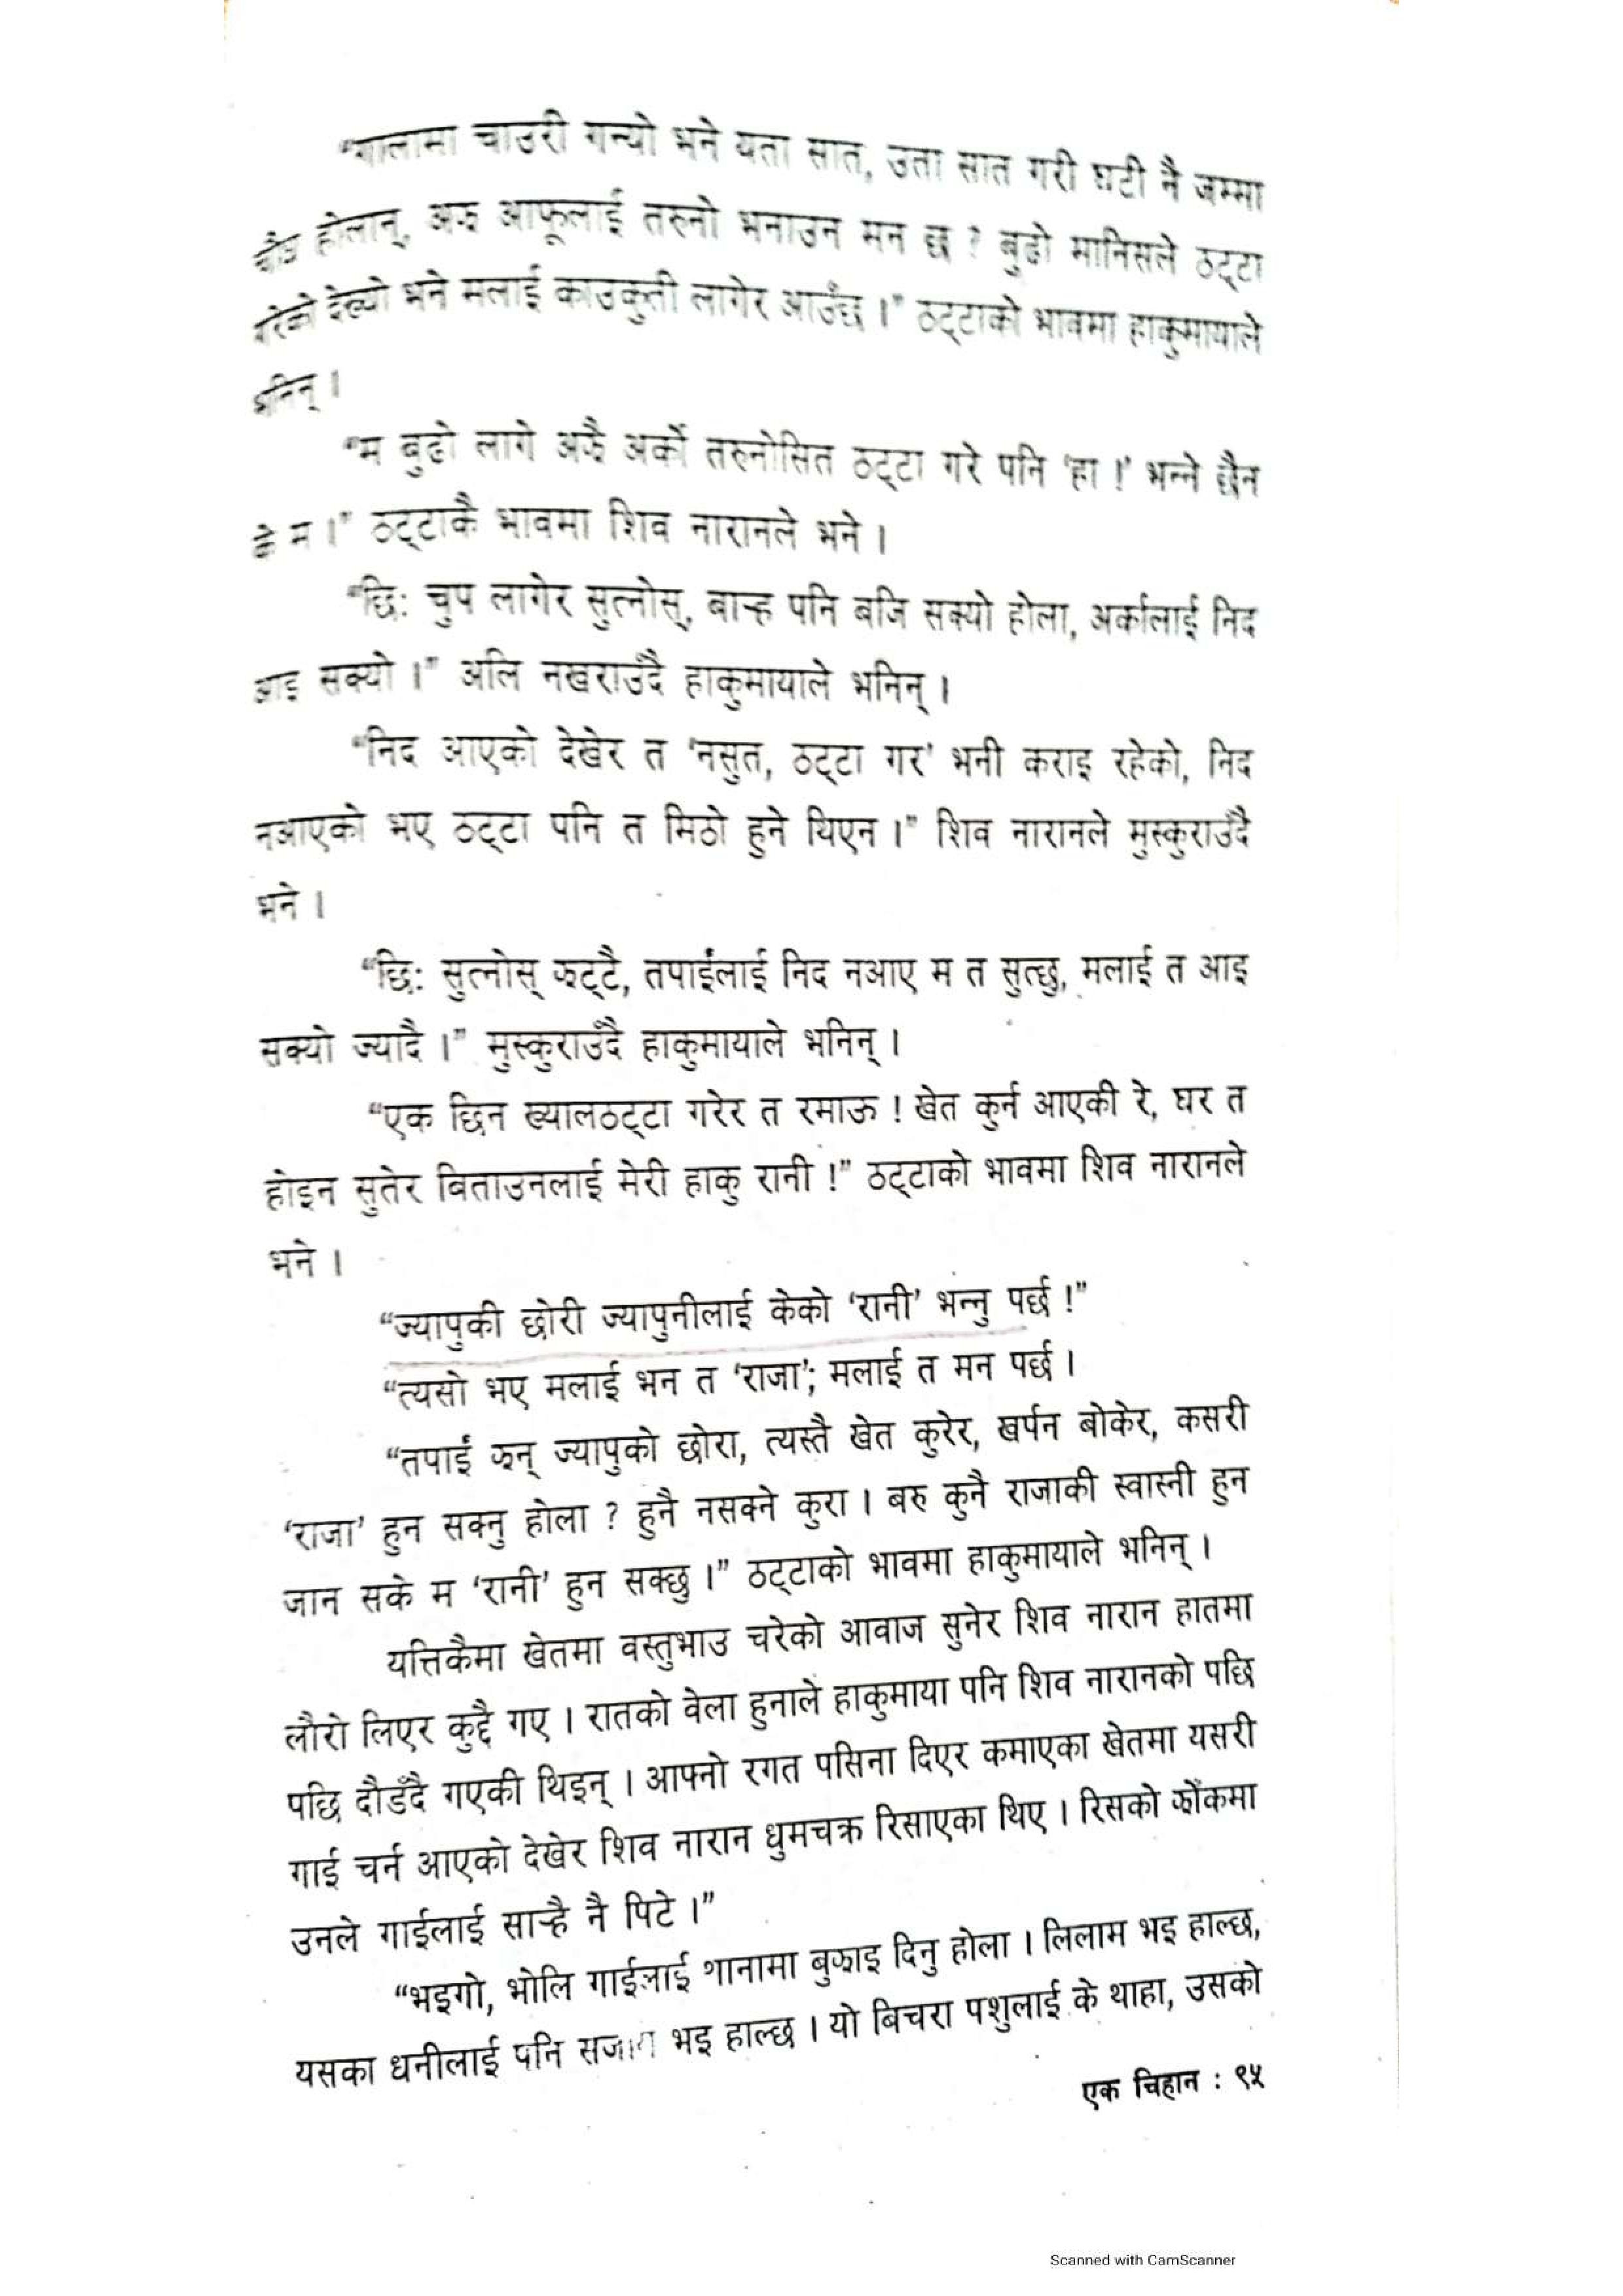 “गालामा चाउरी गन्यो भने यता सात, उता सात गरी घटी नै जम्मा
चौध होलान्, अझ आफूलाई तरुनो भनाउन मन छ ? बुढो मानिसले ठट्टा
गरेको देख्यो भने मलाई काउकुती लागेर आउँछ ।” ठट्टाको भावमा हाकुमायाले
भनिन् ।
“म बुढो लागे अझै अर्को तरुनोसित ठट्टा गरे पनि ‘हा !’ भन्ने छैन
के म ।” ठट्टाकै भावमा शिव नारानले भने ।
“छि: चुप लागेर सुत्नोस्, बाऱ्ह पनि बजि सक्यो होला, अर्कालाई निद
आइ सक्यो ।” अलि नखराउँदै हाकुमायाले भनिन् ।
“निद आएको देखेर त ‘नसुत, ठट्टा गर’ भनी कराइ रहेको, निद
नआएको भए ठट्टा पनि त मिठो हुने थिएन ।” शिव नारानले मुस्कुराउँदै
भने ।
“छि: सुत्नोस् झट्टै, तपाईंलाई निद नआए म त सुत्छु, मलाई त आइ
सक्यो ज्यादै ।” मुस्कुराउँदै हाकुमायाले भनिन् ।
“एक छिन ख्यालठट्टा गरेर त रमाऊ ! खेत कुर्न आएकी रे, घर त
होइन सुतेर विताउनलाई मेरी हाकु रानी !” ठट्टाको भावमा शिव नारानले
भने ।
“ज्यापुकी छोरी ज्यापुनीलाई केको ‘रानी’ भन्नु पर्छ !”
“त्यसो भए मलाई भन त ‘राजा’; मलाई त मन पर्छ ।
“तपाईं झन् ज्यापुको छोरा, त्यस्तै खेत कुरेर, खर्पन बोकेर, कसरी
‘राजा’ हुन सक्नु होला ? हुनै नसक्ने कुरा । बरु कुनै राजाकी स्वास्नी हुन
जान सके म ‘रानी’ हुन सक्छु ।” ठट्टाको भावमा हाकुमायाले भनिन् ।
यत्तिकैमा खेतमा वस्तुभाउ चरेको आवाज सुनेर शिव नारान हातमा
लौरो लिएर कुद्दै गए । रातको वेला हुनाले हाकुमाया पनि शिव नारानको पछि
पछि दौडँदै गएकी थिइन् । आफ्नो रगत पसिना दिएर कमाएका खेतमा यसरी
गाई चर्न आएको देखेर शिव नारान धुमचक्र रिसाएका थिए । रिसको झोँकमा
उनले गाईलाई साऱ्है नै पिटे ।”
“भइगो, भोलि गाईलाई थानामा बुझाइ दिनु होला । लिलाम भइ हाल्छ,
यसका धनीलाई पनि भइ हाल्छ । यो बिचरा पशुलाई के थाहा, उसको
एक चिहान : ९५
Scanned with CamScanner